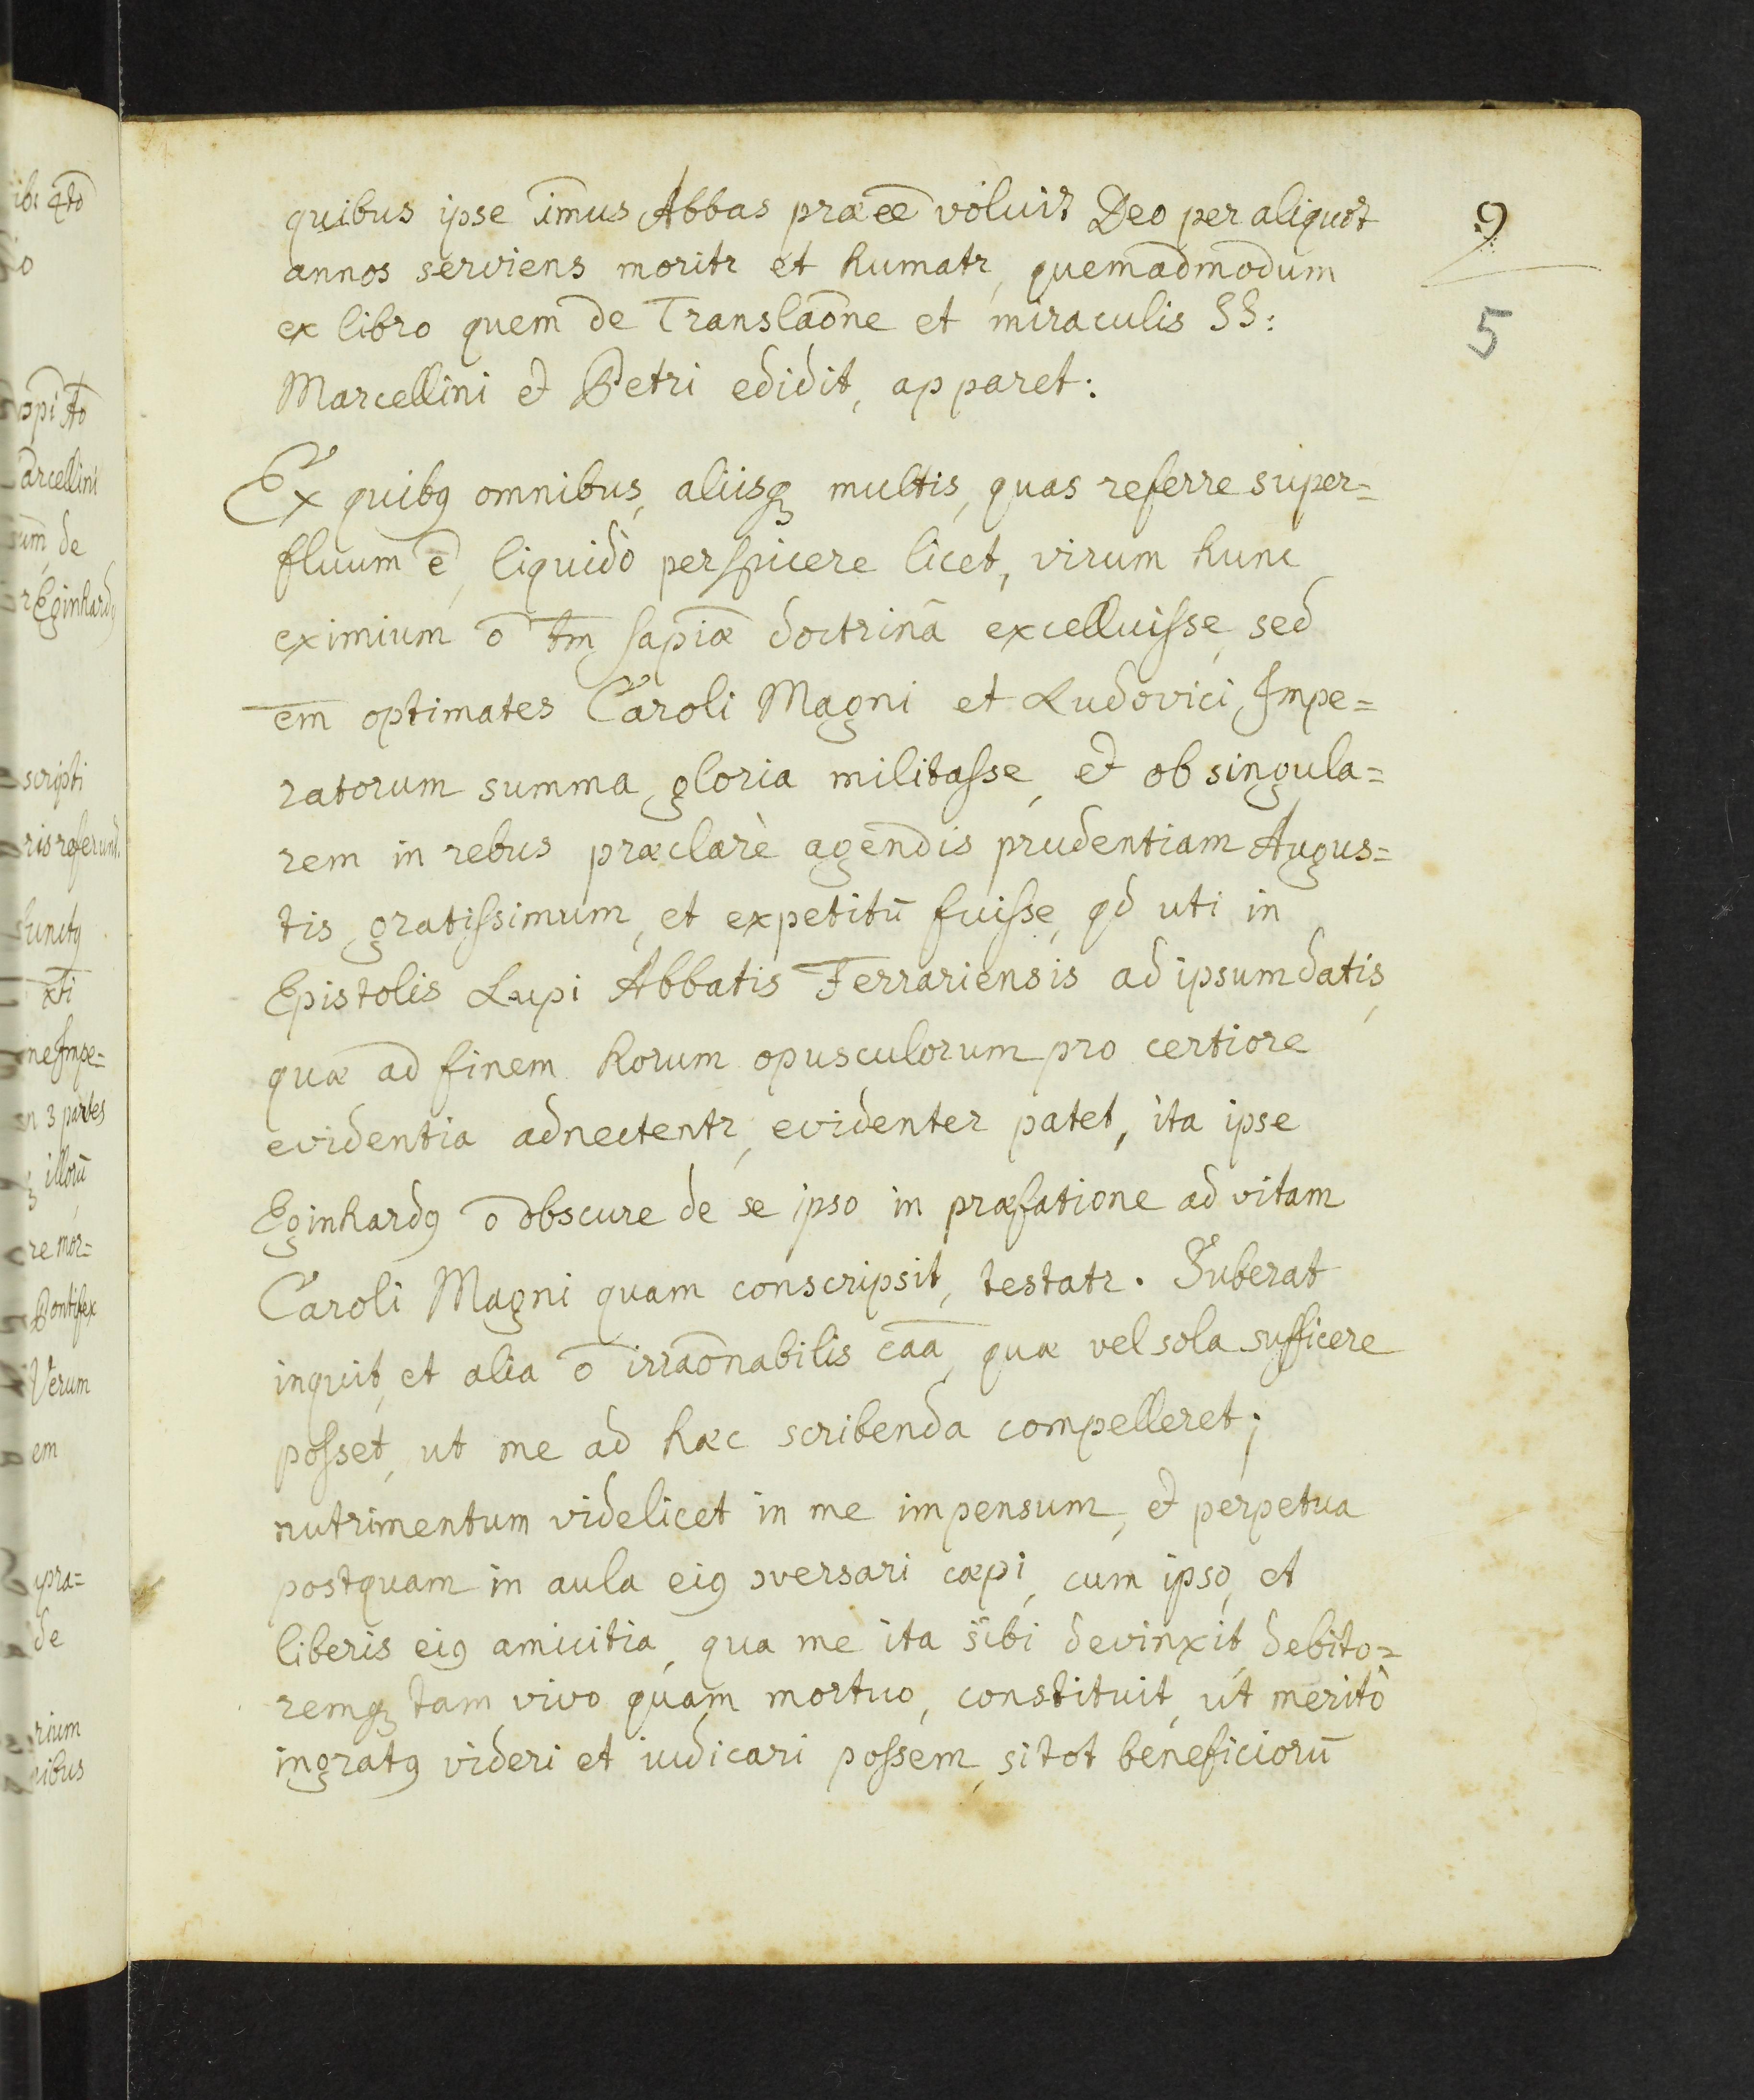 quibus ipse imus Abbas præēē voluit Deo per aliquot
annos serviens moritr et humatr, quemadmodum
ex libro quem de Translaōne et miraculis SS:
Marcellini et Petri edidit, apparet:
Ex quibꝯ omnibus, aliisqꝫ multis, quas referre super=
fluum ē, liquidò perspicere licet, virum hunc
eximium ō tm̄ sapiæ doctrinâ excelluisse, sed
em̄ optimates Caroli Magni et Ludovici Impe=
ratorum summa gloria militasse, et ob singula=
rem in rebus præclarè agendis prudentiam Augus=
tis gratissimum, et expetitū fuisse, qd uti in
Epistolis Lupi Abbatis Ferrariensis ad ipsum datis,
quæ ad finem horum opusculorum pro certiore
evidentia adnectentr, evidenter patet, ita ipse
Eginhardꝯ ō obscure de se ipso in præfatione ad vitam
Caroli Magni quam conscripsit, testatr. Suberat
inquit, et alia ō irraōnabilis cāā, quæ vel sola sufficere
posset, ut me ad hæc scribenda compelleret;
nutrimentum videlicet in me impensum, et perpetua
postquam in aula eiꝯ ↄversari cæpi, cum ipso, et
liberis eiꝯ amicitia, qua me ita sibi devinxit, debito=
remqꝫ tam vivo quam mortuo, constituit, ut meritò
ingratꝯ videri et iudicari possem, si tot beneficiorū
9
5
ibi qto
arcellini
um, de
r Eginhardꝯ
scripti
ris referunt.
functꝯ
xti
ne Impe=
n 3 partes
illorū
re mor=
Pontifex
Verum
em
upra=
de
rium
ibus